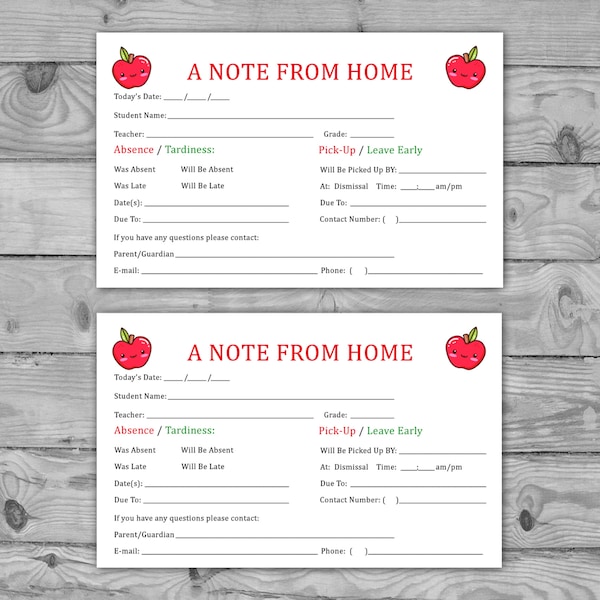 A NOTE FROM HOME
Today's Date: _____/_____/_____
Student Name:____________________
Teacher:____________________ Grade:__________
Absence / Tardiness: Pick-Up / Leave Early
Was Absent Will Be Absent Will Be Picked Up BY:____________________
Was Late Will Be Late At: Dismissal Time: _____:_____am/pm
Date(s):____________________ Due To:____________________
Due To:____________________ Contact Number: ( )____________________
If you have any questions please contact:
Parent/Guardian____________________
E-mail:____________________ Phone: ( )____________________
A NOTE FROM HOME
Today's Date: _____/_____/_____
Student Name:____________________
Teacher:____________________ Grade:__________
Absence / Tardiness: Pick-Up / Leave Early
Was Absent Will Be Absent Will Be Picked Up BY:____________________
Was Late Will Be Late At: Dismissal Time: _____:_____am/pm
Date(s):____________________ Due To:____________________
Due To:____________________ Contact Number: ( )____________________
If you have any questions please contact:
Parent/Guardian____________________
E-mail:____________________ Phone: ( )____________________